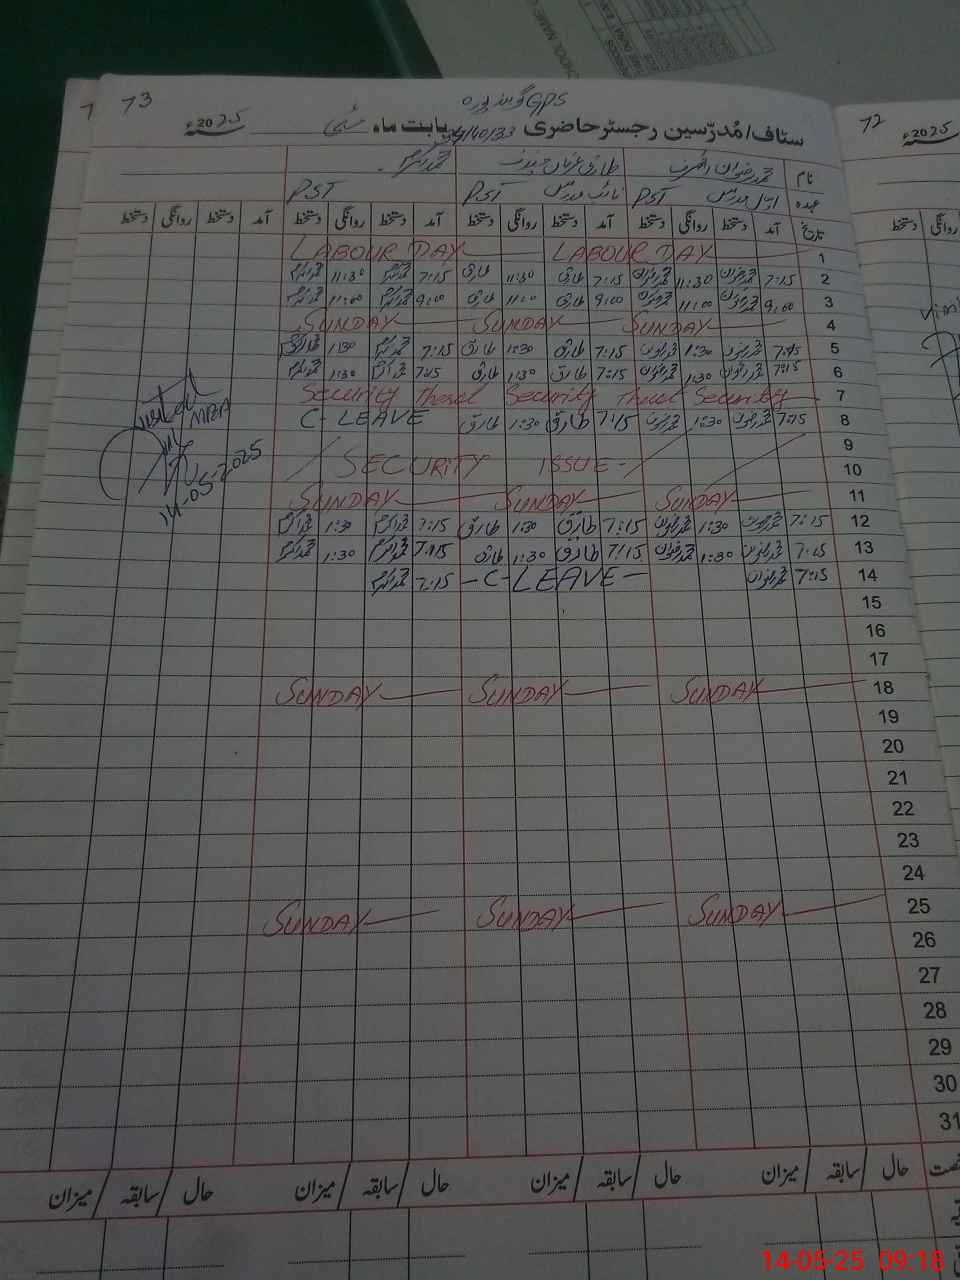 73
72
GPS
سٹاف/مُدرّسین رجسٹر حاضری 34/40/33 بابت ماہ مئی 2025ء
2025ء
نام محمد رضوان
عہدہ PST PST
تاریخ آمد دستخط روانگی دستخط آمد دستخط روانگی دستخط آمد دستخط روانگی دستخط آمد دستخط روانگی دستخط
روانگی دستخط
1 LABOUR DAY LABOUR DAY
2 7:15 محمد رضوان 11:30 محمد رضوان 7:15 طارق 11:30 طارق 7:15 محمد اکرم 11:30 محمد اکرم
3 9:00 محمد رضوان 11:00 محمد رضوان 9:00 طارق 11:00 طارق 9:00 محمد اکرم 11:00 محمد اکرم
4 SUNDAY SUNDAY SUNDAY
5 7:15 محمد رضوان 1:30 محمد رضوان 7:15 طارق 1:30 طارق 7:15 محمد اکرم 1:30 محمد اکرم
6 7:15 محمد رضوان 1:30 محمد رضوان 7:15 طارق 1:30 طارق 7:15 محمد اکرم 1:30 محمد اکرم
7 Security Security Security
8 7:15 محمد رضوان 1:30 محمد رضوان 7:15 طارق 1:30 طارق C-LEAVE
9
10 SECURITY ISSUE-
11 SUNDAY SUNDAY SUNDAY
12 7:15 محمد رضوان 1:30 محمد رضوان 7:15 طارق 1:30 طارق 7:15 محمد اکرم 1:30 محمد اکرم
13 7:15 محمد رضوان 1:30 محمد رضوان 7:15 طارق 1:30 طارق 7:15 محمد اکرم 1:30 محمد اکرم
14 7:15 محمد رضوان -C-LEAVE- 7:15 محمد اکرم
MEA
14-05-2025
15
16
17
18 SUNDAY SUNDAY SUNDAY
19
20
21
22
23
24
25 SUNDAY SUNDAY SUNDAY
26
27
28
29
30
31
حال سابقہ میزان حال سابقہ میزان حال سابقہ میزان حال سابقہ میزان
14-05-25 09:18